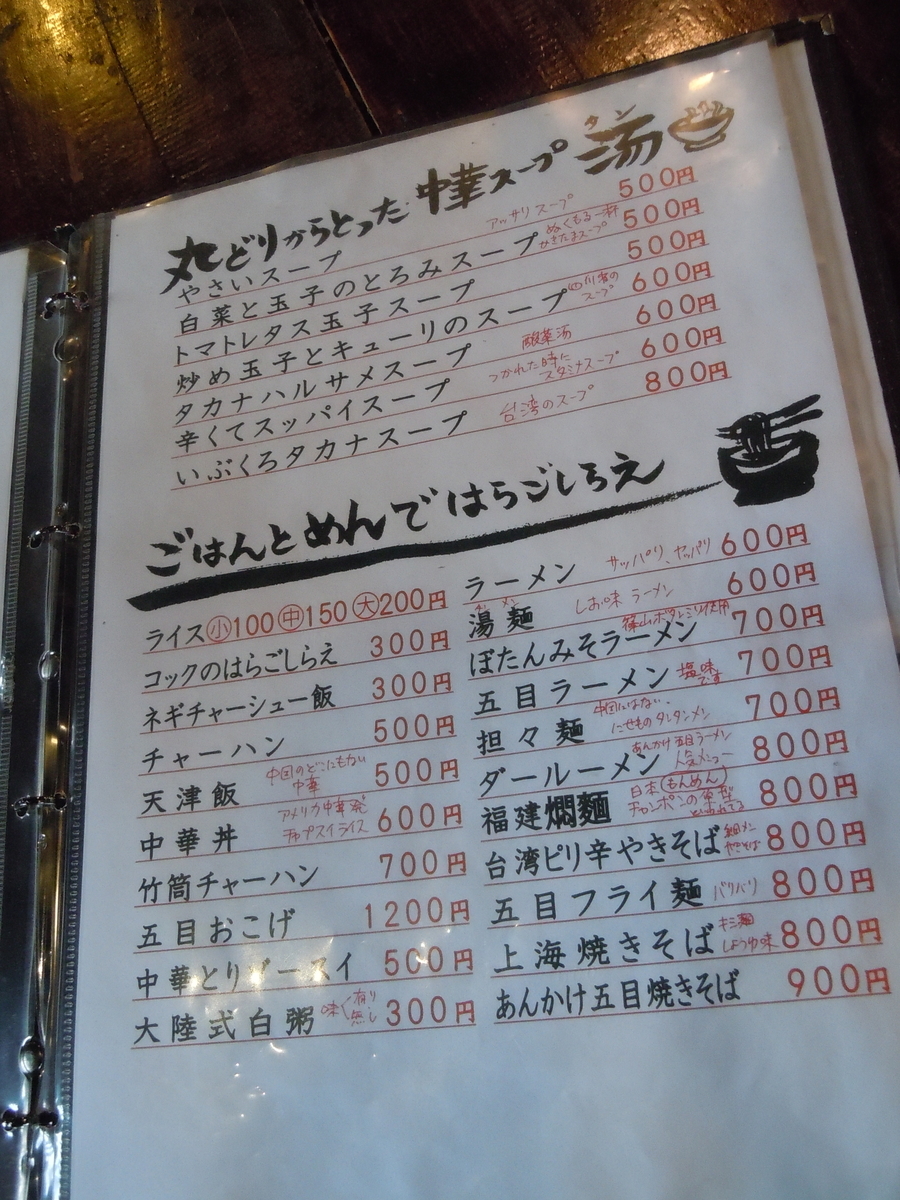 丸どりからとった 中華スープ 湯 タン
やさいスープ アッサリスープ 500円
白菜と玉子のとろみスープ ぬくもる一杯 かきたまスープ 500円
トマトレタス玉子スープ 500円
炒め玉子とキューリのスープ 四川省のスープ 600円
タカナハルサメスープ 酸菜湯 600円
辛くてスッパイスープ つかれた時に スタミナスープ 600円
いぶくろタカナスープ 台湾のスープ 800円
ごはんとめんで はらごしらえ
ライス小100中150大200円
コックのはらごしらえ 300円
ネギチャーシュー飯 300円
チャーハン 500円
天津飯 中国のどこにもない中華 500円
中華丼 アメリカ中華発 チャプスイライス 600円
竹筒チャーハン 700円
五目おこげ 1200円
中華とりゾースイ 500円
大陸式白粥 味く有り 無し 300円
ラーメン サッパリ、ヤッパリ 600円
湯麺 タンメン しお味 ラーメン 600円
ぼたんみそラーメン 篠山ボタンミソ使用 700円
五目ラーメン 塩味です 700円
担々麺 中国にはない にせものタンタンメン 700円
ダールーメン あんかけ五目ラーメン 人気メニュー 800円
福建燜麺 日本(もんめん) チャンポンの 800円
台湾ピリ辛やきそば 細メン やきそば 800円
五目フライ麺 バリバリ 800円
上海焼きそば しょうゆ味 800円
あんかけ五目焼きそば 900円